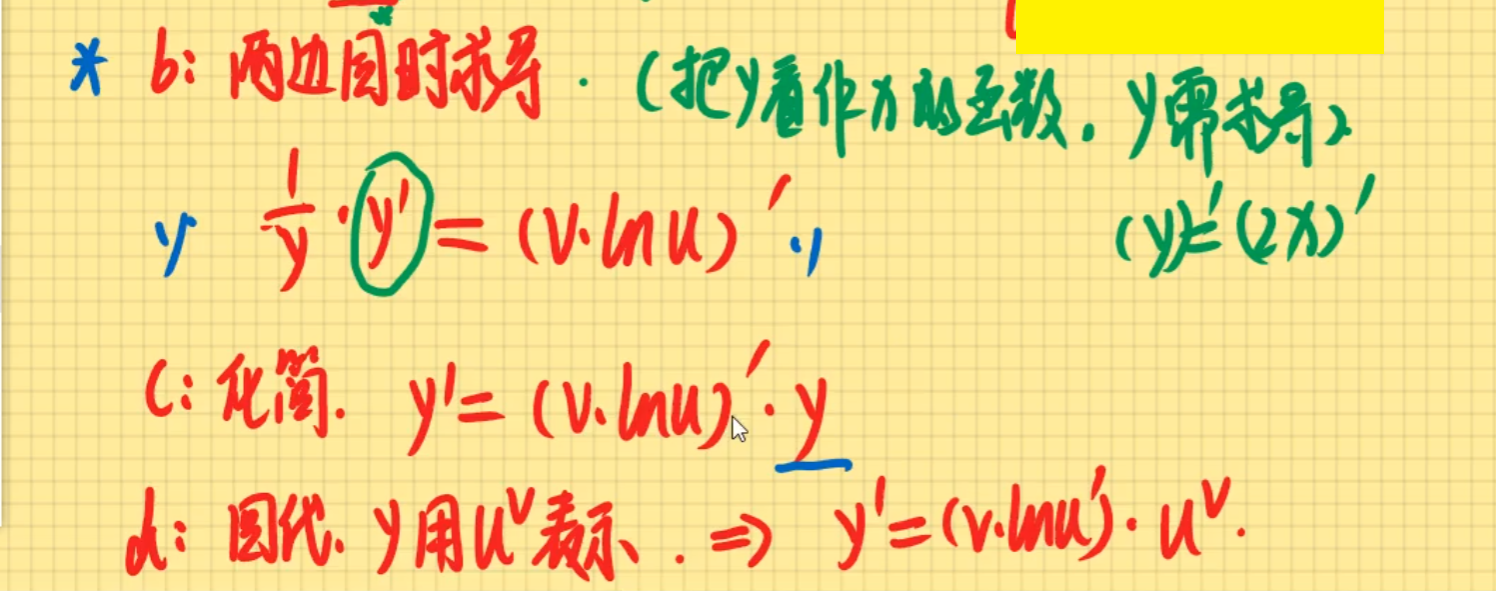 * b: 两边同时求导. (把y看作x的函数. y需求导)
y 1/y · y' = (v·lnu)' · y
(y)'=(2x)'
c: 化简. y' = (v·lnu)' · y
d: 回代. y用u^v表示. ⇒ y' = (v·lnu)' · u^v.